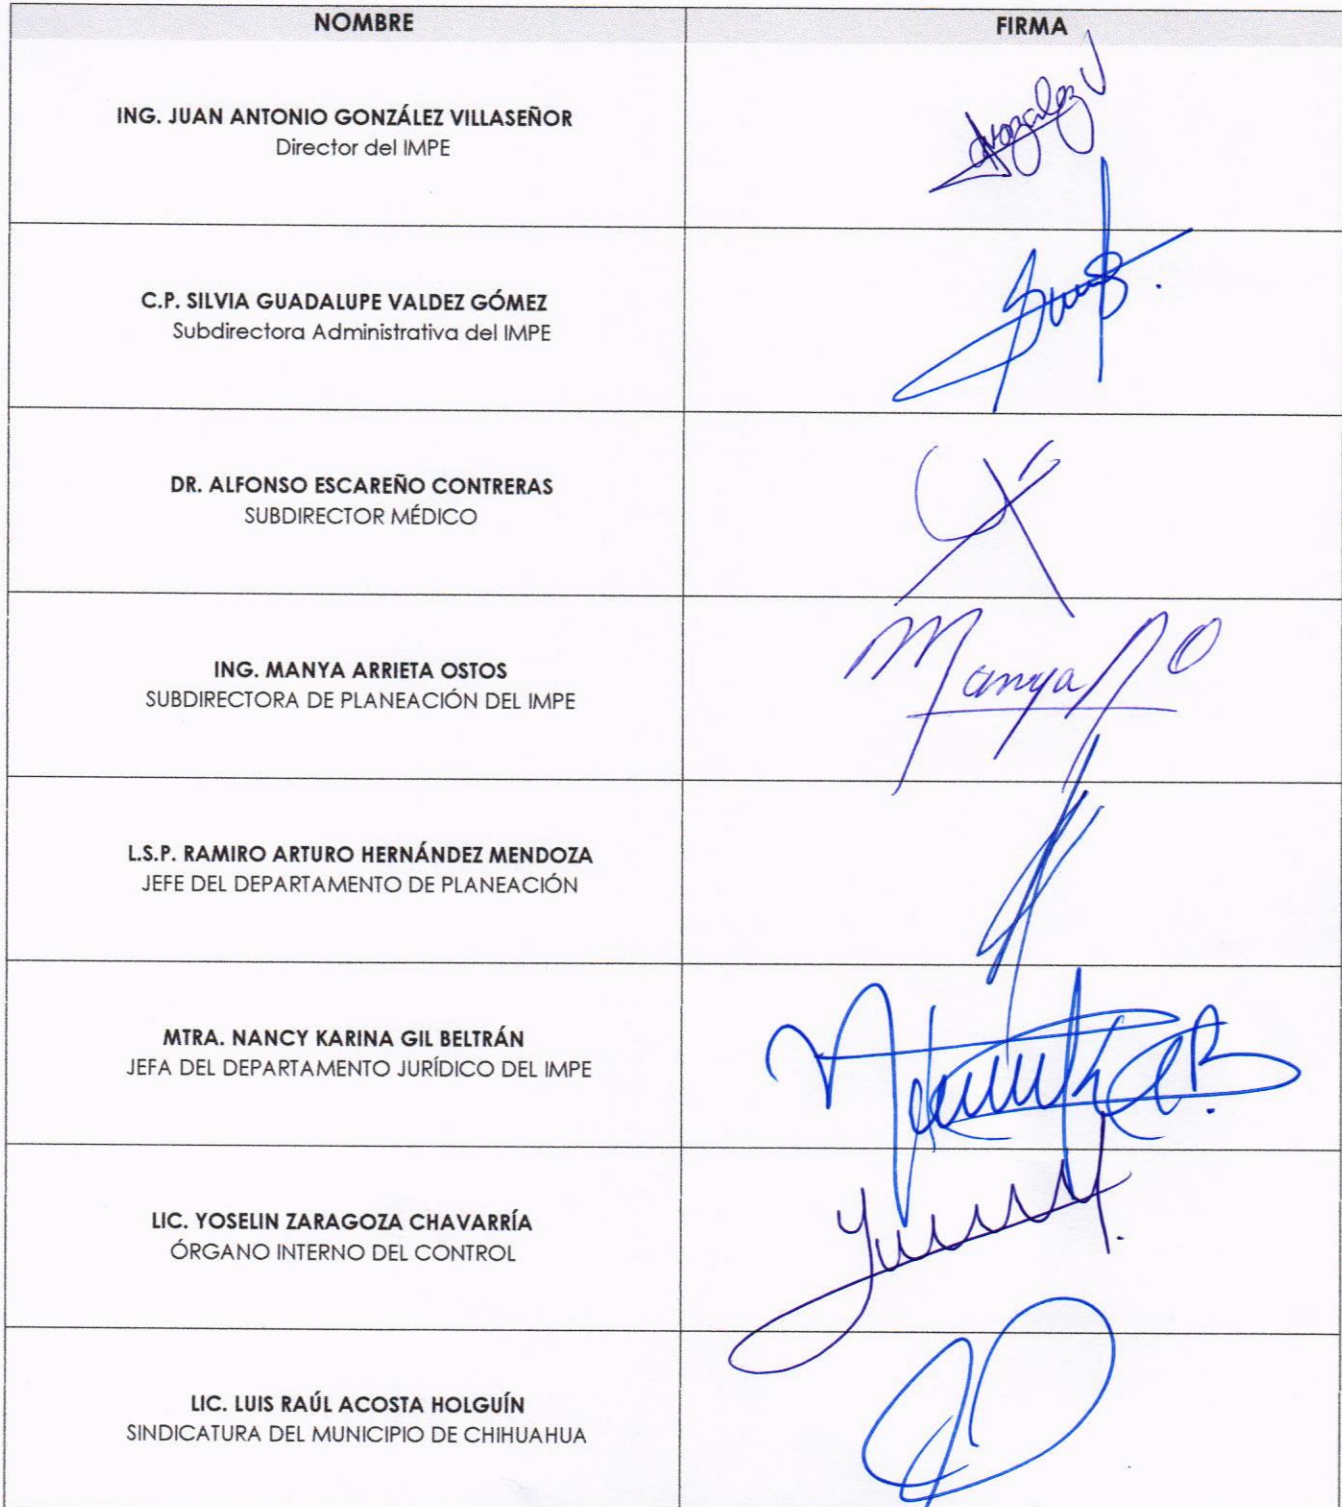 NOMBRE FIRMA
ING. JUAN ANTONIO GONZÁLEZ VILLASEÑOR
Director del IMPE
C.P. SILVIA GUADALUPE VALDEZ GÓMEZ
Subdirectora Administrativa del IMPE
DR. ALFONSO ESCAREÑO CONTRERAS
SUBDIRECTOR MÉDICO
ING. MANYA ARRIETA OSTOS
SUBDIRECTORA DE PLANEACIÓN DEL IMPE
Manya A O
L.S.P. RAMIRO ARTURO HERNÁNDEZ MENDOZA
JEFE DEL DEPARTAMENTO DE PLANEACIÓN
MTRA. NANCY KARINA GIL BELTRÁN
JEFA DEL DEPARTAMENTO JURÍDICO DEL IMPE
LIC. YOSELIN ZARAGOZA CHAVARRÍA
ÓRGANO INTERNO DEL CONTROL
LIC. LUIS RAÚL ACOSTA HOLGUÍN
SINDICATURA DEL MUNICIPIO DE CHIHUAHUA